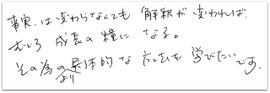 事実は変わらなくても解釈が変われば
むしろ成長の糧になる。
その為のより具体的な方法を学びたいです。